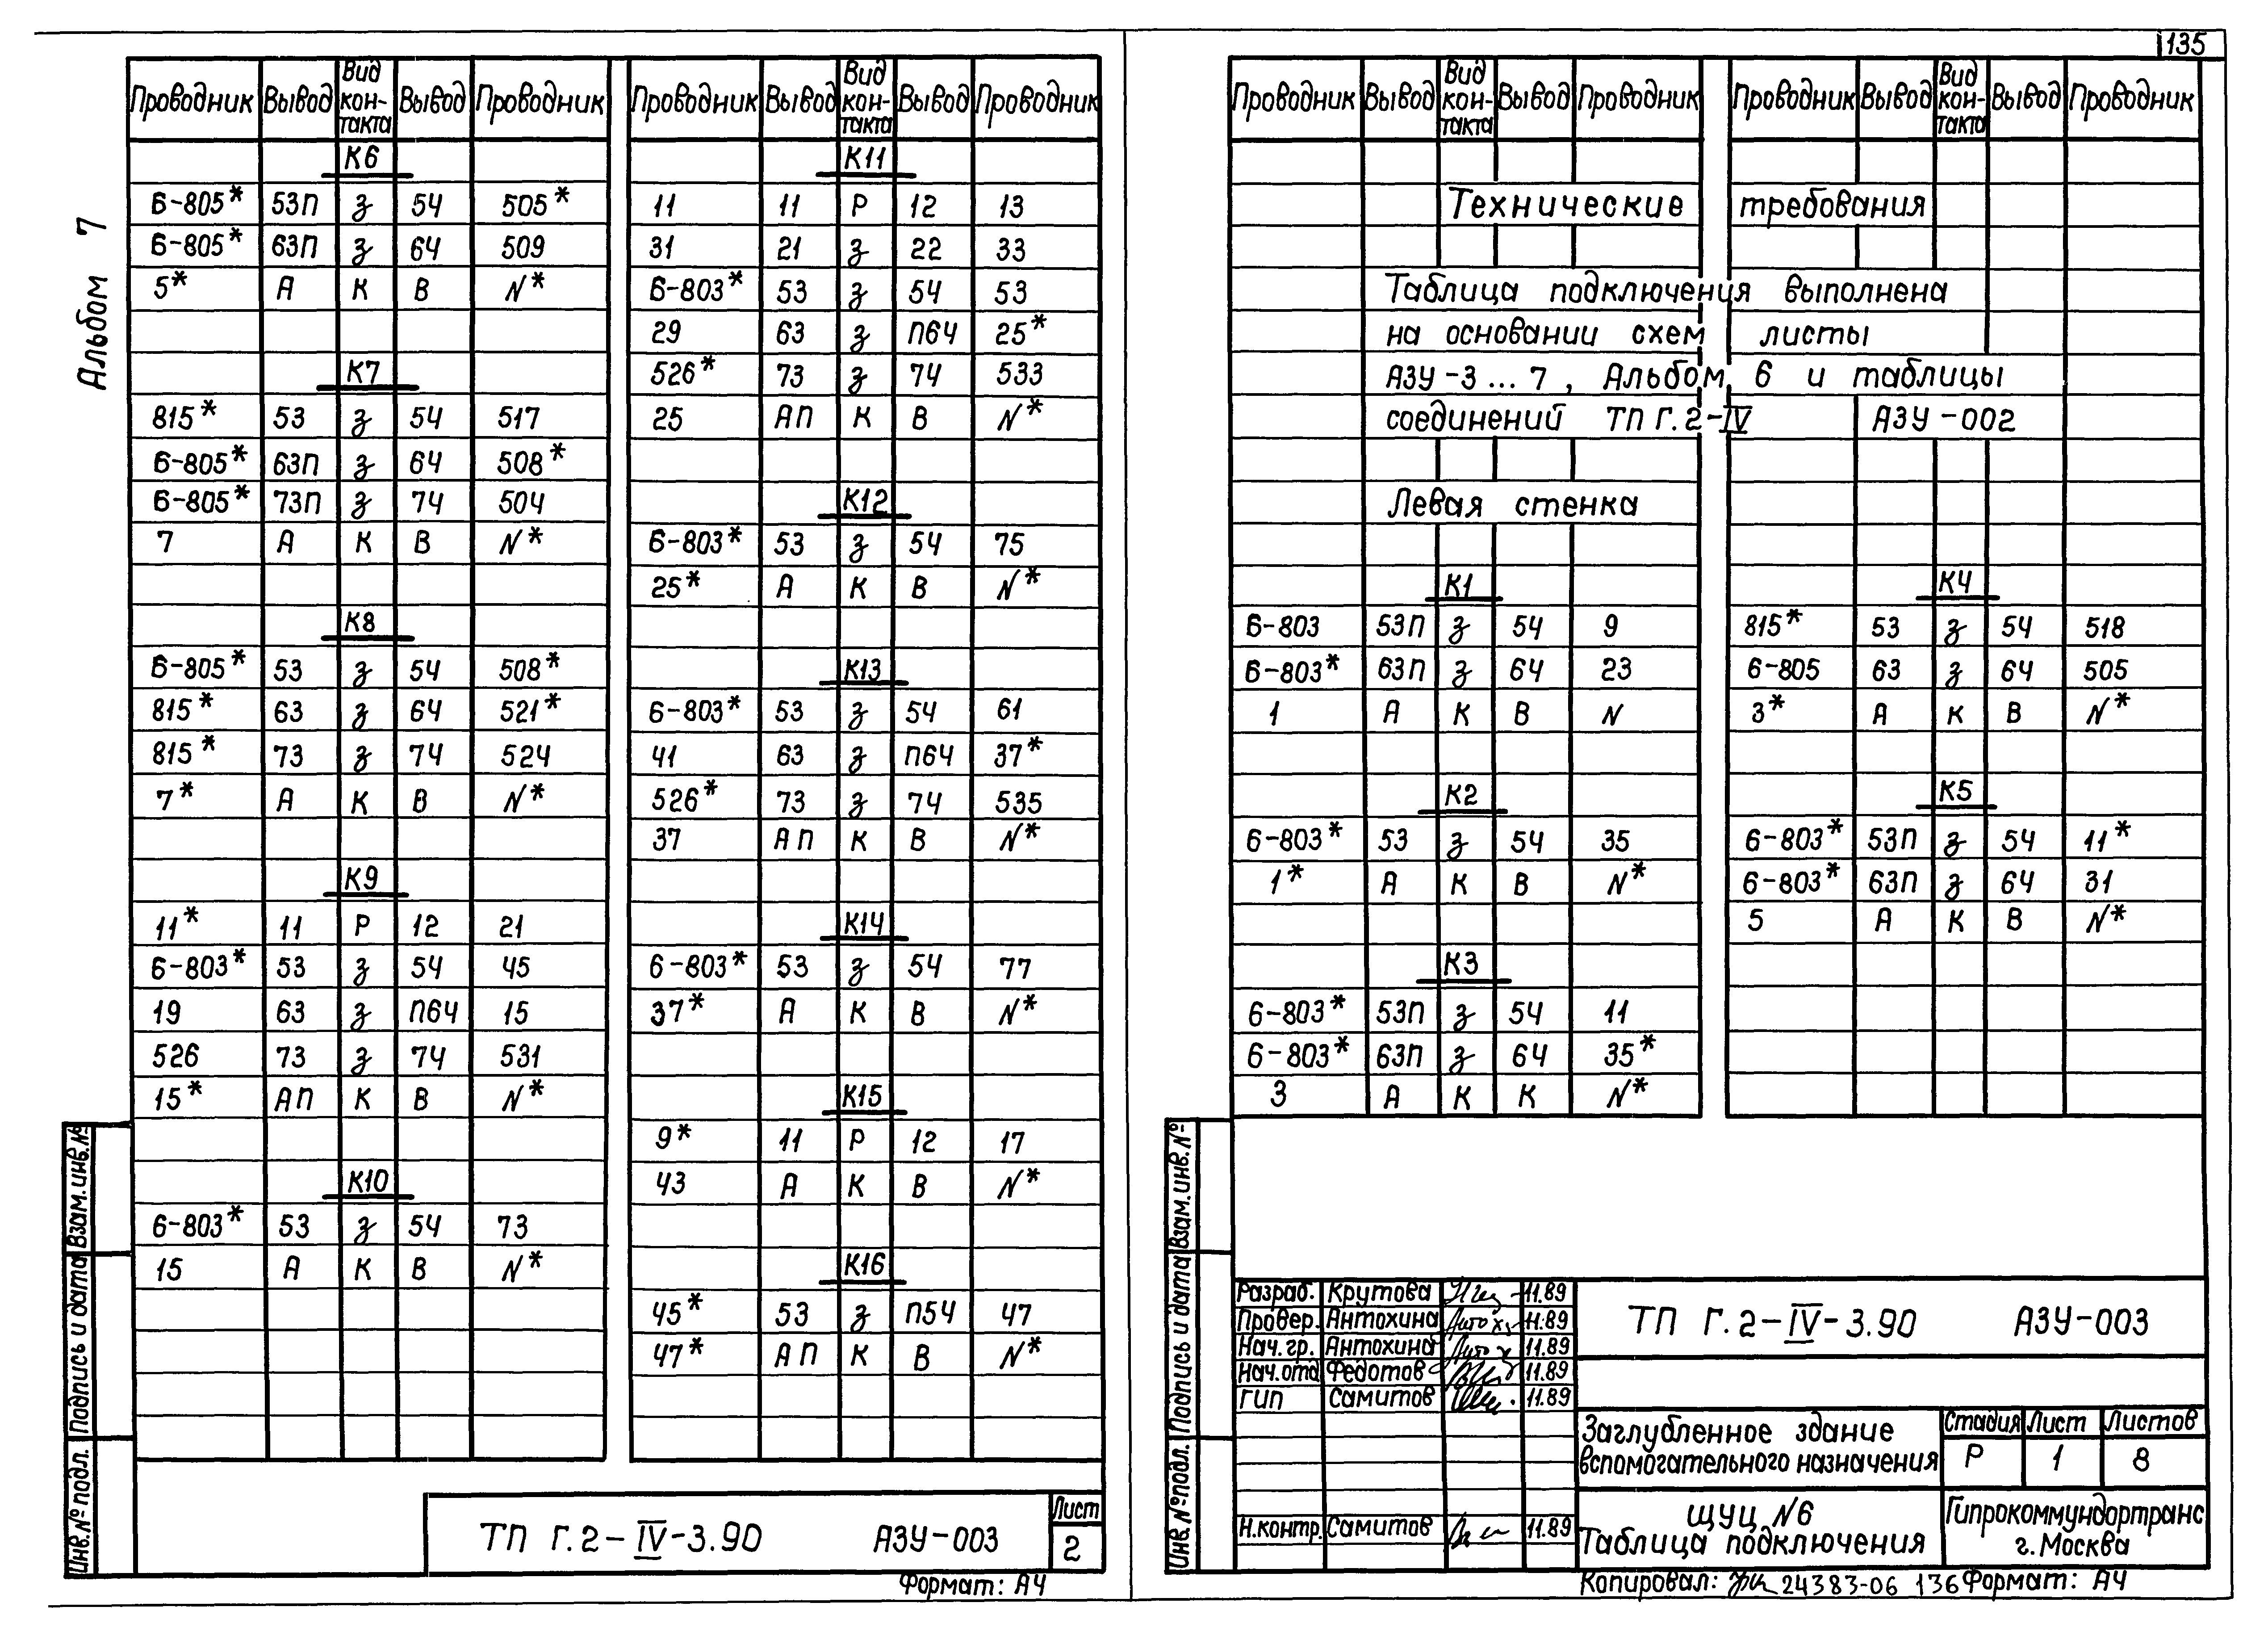 135
Альбом 7
Проводник Вывод Вид контакта Вывод Проводник
К6
Б-805* 53П з 54 505*
Б-805* 63П з 64 509
5* А К В N*
К7
815* 53 з 54 517
Б-805* 63П з 64 508*
Б-805* 73П з 74 504
7 А К В N*
К8
Б-805* 53 з 54 508*
815* 63 з 64 521*
815* 73 з 74 524
7* А К В N*
К9
11* 11 Р 12 21
Б-803* 53 з 54 45
19 63 з П64 15
526 73 з 74 531
15* АП К В N*
К10
Б-803* 53 з 54 73
15 А К В N*
Проводник Вывод Вид контакта Вывод Проводник
К11
11 11 Р 12 13
31 21 з 22 33
Б-803* 53 з 54 53
29 63 з П64 25*
526* 73 з 74 533
25 АП К В N*
К12
Б-803* 53 з 54 75
25* А К В N*
К13
Б-803* 53 з 54 61
41 63 з П64 37*
526* 73 з 74 535
37 АП К В N*
К14
Б-803* 53 з 54 77
37* А К В N*
К15
9* 11 Р 12 17
43 А К В N*
К16
45* 53 з П54 47
47* АП К В N*
Взам. инв. №
Подпись и дата
Инв. № подл.
ТП Г.2-IV-3.90 АЗУ-003
Лист
2
Формат: А4
Проводник Вывод Вид контакта Вывод Проводник
Проводник Вывод Вид контакта Вывод Проводник
Технические требования
Таблица подключения выполнена
на основании схем листы
АЗУ-3...7, Альбом 6 и таблицы
соединений ТП Г.2-IV АЗУ-002
Левая стенка
К1
Б-803 53П з 54 9
Б-803* 63П з 64 23
1 А К В N
К2
Б-803* 53 з 54 35
1* А К В N*
К3
Б-803* 53П з 54 11
Б-803* 63П з 64 35*
3 А К К N*
К4
815* 53 з 54 518
Б-805 63 з 64 505
3* А К В N*
К5
Б-803* 53П з 54 11*
Б-803* 63П з 64 31
5 А К В N*
Взам. инв. №
Подпись и дата
Инв. № подл.
Разраб. Крутова 11.89
Провер. Антохина 11.89
Нач. гр. Антохина 11.89
Нач. отд Федотов 11.89
ГИП Самитов 11.89
Н.контр. Самитов 11.89
ТП Г.2-IV-3.90 АЗУ-003
Заглубленное здание
вспомогательного назначения
Стадия Лист Листов
Р 1 8
ЩУЦ №6
Таблица подключения
Гипрокоммундортранс
г. Москва
Копировал: 24383-06 136 Формат: А4